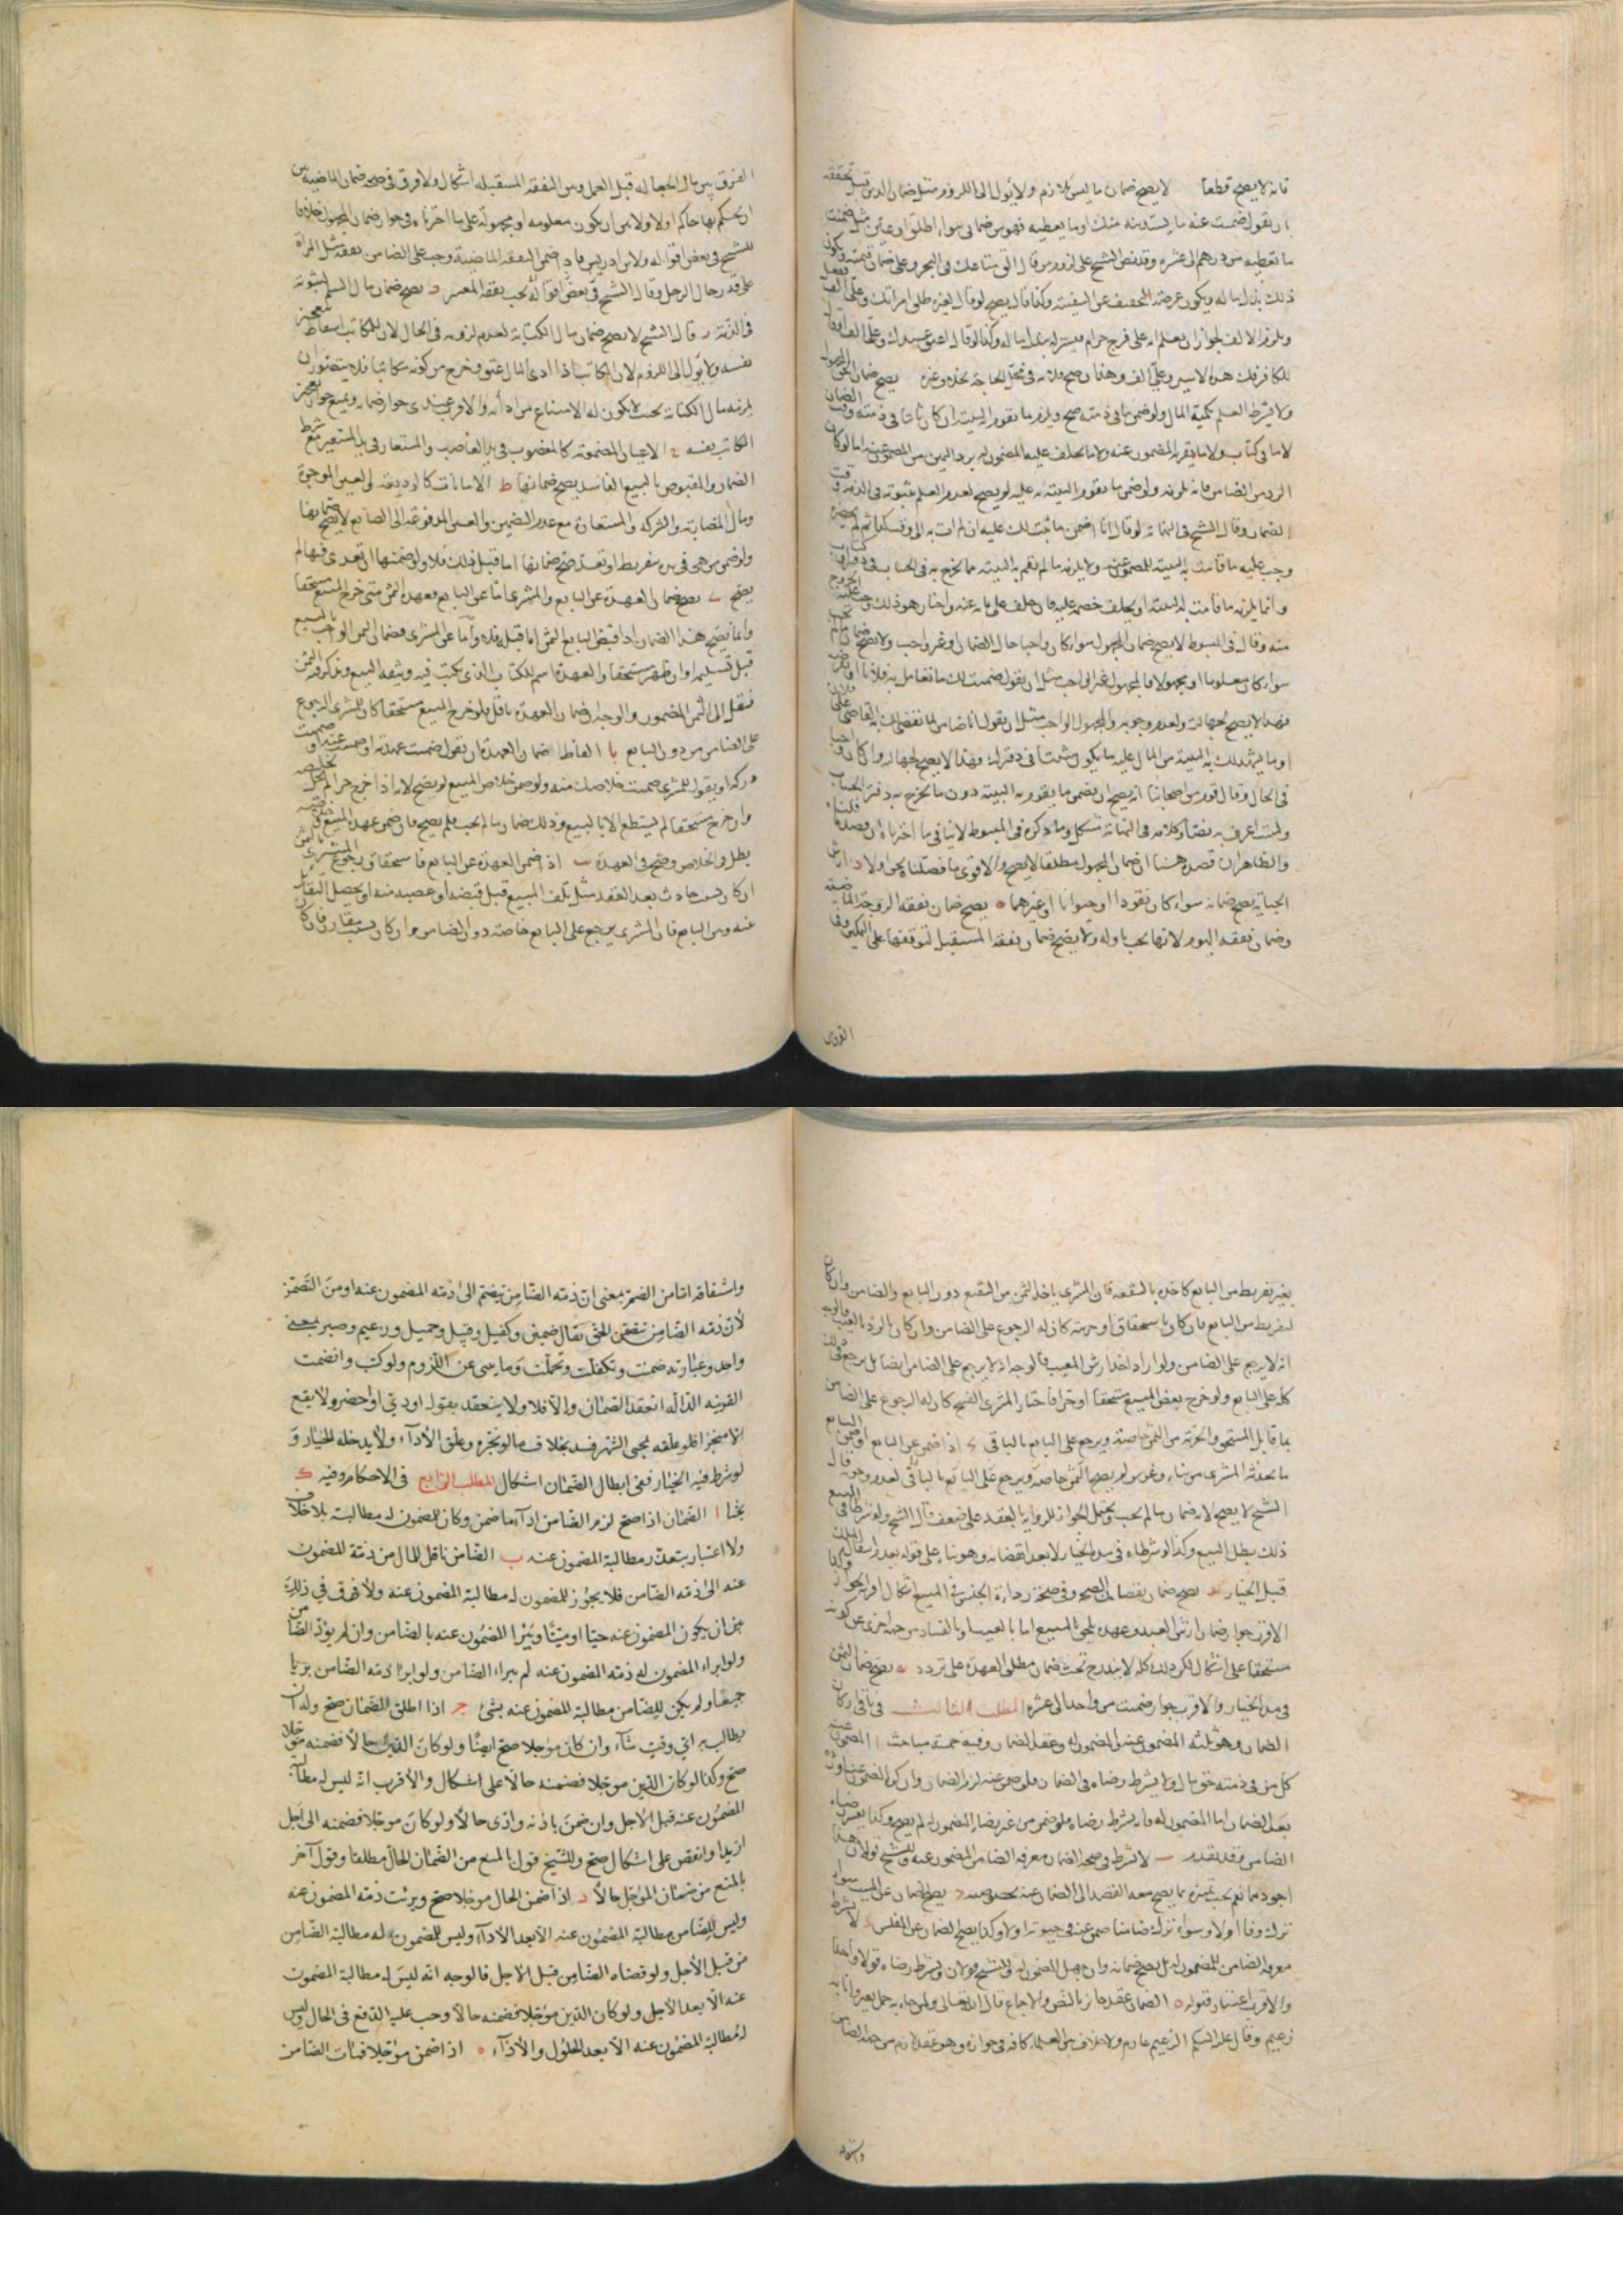 فانه لا يصح قطعا لا يصح ضمان ما ليس بلازم ولا يؤل الى اللزوم مثل ضمان الدين قبل تحققه
بان يقول ضمنت عنه ما يستدينه منك او ما يعطيه فهو من ضمانى سواء اطلق او عين مثل ضمنت
ما تعطيه من درهم الى عشره وقد نص الشيخ على لزوم من قال الق متاعك فى البحر وعلى ضمان قيمته ويكون
ذلك بذل ماله ويكون غرضه التخفيف عن السفينه وكذا قال يصح لو قال لغيره طلق امراتك وعلى الف ففعل
ويلزم الالف لجواز ان يعلم انه على فرج حرام فيستنزله ببذل ماله وكذا لو قال اعتق عبدك وعلى الف او قال
للكافر فك هذا الاسير وعلى الف وهذا يصح لانه فى محل الحاجه يصح ضمان الحق المجهول
ولا يشترط العلم بكمية المال ولو ضمن ما فى ذمته صح ويلزم ما تقوم البينه ان كان ثابتا فى ذمته وقت الضمان
لا ما فى كتاب ولا ما يقر به المضمون عنه ولا ما يحلف عليه المضمون له برد اليمين من المضمون عنه اما لو كان
الرد من الضامن فانه يلزمه ولو ضمن ما تقوم البينه به عليه لم يصح لعدم العلم بثبوته فى الذمه وقت
الضمان وقال الشيخ فى النهايه لو قال انا اضمن ما يثبت لك عليه ان لم ات به الى وقت كذا ثم لم يحضره
وجب عليه ما قامت به البينه للمضمون عنه ولا يلزمه ما لم تقم به البينه مما يخرج به فى الحساب فى دفتر او كتاب
وانما يلزمه ما قامت له البينه او يحلف خصمه عليه فان حلف على ما يدعيه واختار هو ذلك وجب عليه الخروج
منه وقال فى المبسوط لا يصح ضمان المجهول سواء كان واجبا حال الضمان او غير واجب ولا يصح ضمان ما لم يجب
سواء كان معلوما او مجهولا فالمجهول غير الواجب مثل ان يقول ضمنت لك ما تعامل به فلانا او تقرضه
فهذا لا يصح لجهالته ولعدم وجوبه والمجهول الواجب مثل ان يقول انا ضامن لما يقضى لك به القاضى على فلان
او ما يشهد لك به البينه من المال عليه ما يكون مثبتا فى دفترك فهذا لا يصح لجهالته وان كان واجبا
فى الحال وقال قوم من اصحابنا انه يصح ان يضمن ما يقوم به البينه دون ما يخرج به دفتر الحساب
ولست اعرف به نصا وكلامه فى النهايه مشكل وما ذكره فى المبسوط لا ينافى ما اخترناه ان قصده فلناه
والظاهر ان قصده هنا ان ضمان المجهول مطلقا لا يصح والاقوى ما فصلناه نحن اولا د ارش
الجنايه يصح ضمانه سواء كان نقودا او حيوانا او غيرهما ه يصح ضمان نفقه الزوجه الماضيه
وضمان نفقه اليوم لانها تجب باوله ولا يصح ضمان نفقه المستقبل لتوقفها على التمكين وفى
الفرق
الفرق بين مال الجعاله قبل العمل وبين النفقه المستقبله اشكال ولا فرق فى صحه ضمان الماضيه بين
ان يحكم بها حاكم او لا ولا بين ان يكون معلومه او مجهوله على ما اخترناه فى جواز ضمان المجهول خلافا
للشيخ فى بعض اقواله ولابن ادريس فاذا ضمن النفقه الماضية وجب على الضامن نفقه مثل المرأة
على قدر حال الرجل وقال الشيخ فى بعض اقواله تجب نفقه المعسر و يصح ضمان مال السلم لثبوته
فى الذمه ز قال الشيخ لا يصح ضمان مال الكتابه لعدم لزومه فى الحال لان للمكاتب اسقاطه بتعجيز
نفسه ولا يؤل الى اللزوم لان المكاتب اذا ادى المال عتق وخرج من كونه مكاتبا فلا يتصور ان
يلزمه مال الكتابه بحيث لا يكون له الامتناع من ادائه والاقرب عندى جواز ضمانه ويمنع جواز تعجيز
المكاتب نفسه ح الاعيان المضمونه كالمغصوب فى يد الغاصب والمستعار فى يد المستعير مع شرط
الضمان والمقبوض بالبيع الفاسد يصح ضمانها ط الامانات كالوديعه والعين الموجرة
ومال المضاربه والشركه والمستعاره مع عدم التضمين والعين المدفوعه الى الصانع لا يصح ضمانها
ولو ضمن من هى فى يده بتفريط او تعد صح ضمانها اما قبل ذلك فلا ولو ضمنها ان تعدى فيها لم
يصح ى يصح ضمان العهدة عن البايع والمشترى اما عن البايع فعهدة الثمن متى خرج المبيع مستحقا
وانما يصح هذا الضمان اذا قبض البايع الثمن اما قبله فلا واما عن المشترى فضمان الثمن الواجب بالبيع
قبل تسليمه او ان ظهر مستحقا والعهدة اسم للكتاب الذى يكتب فيه وثيقه البيع ويذكر فيه الثمن
فنقل الى الثمن المضمون والوجه ان ضمان العهدة ناقل فلو خرج المبيع مستحقا كان للمشترى الرجوع
على الضامن دون البايع يا الفاظ ضمان العهدة ان يقول ضمنت عهدته او ضمنت عنه او
دركه او يقول للمشترى ضمنت خلاصك منه ولو ضمن خلاص المبيع لم يصح لانه اذا خرج حرا لم يخل تخليصه
وان خرج مستحقا لم يستطع الا بالبيع وذلك ضمان ما لم يجب فلم يصح فان ضمن عهدة المبيع وخلاصه
بطل فى الخلاص وصح فى العهدة يب اذا ضمن العهدة عن البايع فاستحقاق رجوع المشترى بالثمن
ان كان بسبب حادث بعد العقد مثل تلف المبيع قبل قبضه او غصبه منه او يحصل التقايل
عنه ومن البايع فان المشترى يرجع على البايع خاصة دون الضامن وان كان بسبب مقارن فان كان
بغير تفريط من البايع كاخذه بالشفعه فان المشترى ياخذ الثمن من الشفيع دون البايع والضامن وان كان
لتفريط من البايع فان كان باستحقاق او حريه كان له الرجوع على الضامن وان كان بالرد بالعيب فالوجه
انه لا يرجع على الضامن ولو اراد اخذ ارش المعيب فالوجه انه لا يرجع على الضامن ايضا بل يرجع فى ذلك
كله على البايع ولو خرج بعض المبيع مستحقا او حرا فاختار المشترى الفسخ كان له الرجوع على الضامن
بما قابل المستحق والحريه من الثمن خاصة ويرجع على البايع بالباقى يج اذا ضمن عن البايع او ضمن البايع
ما يحدثه المشترى من بناء وغرس لم يصح لعدم وجوبه قال
الشيخ لا يصح لانه ضمان ما لم يجب ويحتمل الجواز للزومه بالعقد على ضعف قال الشيخ ولو شرطا فى البيع
ذلك بطل البيع وكذا لو شرطاه فى مدة الخيار لا بعد انقضائه وهو بناء على قوله بعدم انتقال الملك
قبل الخيار يد يصح ضمان نقصان الصنجه وفى صحة ضمان رداءة الجنس فى المبيع اشكال اقربه الجواز وكذا
الاقرب جواز ضمان ارش العبد وعهدة ما يلحق المبيع اما بالعيب او بالفساد من جهة اخرى غير كونه
مستحقا على اشكال لكن ذلك كله لا يندرج تحت ضمان مطلق العهدة على تردد يه يصح ضمان الثمن
فى مدة الخيار والاقرب جواز ضمنت من واحد الى عشره المطلب الثالث فى باقى اركان
الضمان وهو ثلثه المضمون عنه والمضمون له وعقد الضمان وفيه خمسة مباحث ا المضمون عنه
كل من فى ذمته حق مالى ولا يشترط رضاه فى الضمان فلو ضمن عنه لزم الضمان وان كره المضمون عنه او رد
بعد الضمان اما المضمون له فانه يشترط رضاه فلو ضمن من غير رضا المضمون له لم يصح وكذا يعتبر رضاء
الضامن وقد تقدم ب لا يشترط فى صحه الضمان معرفه الضامن المضمون عنه وللشيخ قولان هذا
اجودهما نعم يجب تميزه بما يصح معه القصد الى الضمان عنه ج يصح الضمان عن الميت سواء
ترك وفاء او لا وسواء ترك ضامنا ضمن عنه فى حيوته او لا وكذا يصح الضمان عن المفلس د لا يشترط
معرفه الضامن للمضمون له بل يصح ضمانه وان جهل المضمون له وللشيخ قولان ويشترط رضاه قولا واحدا
والاقرب اعتبار قبوله ه الضمان عقد جايز بالنص والاجماع قال الله تعالى ولمن جاء به حمل بعير وانا به
زعيم وقال عليه السلم الزعيم غارم ولا خلاف بين العلماء كافه فى جوازه وهو عقد لازم من جهة الضامن
واشتقاقه
واشتقاقه اما من الضم بمعنى ان ذمه الضامن تنضم الى ذمه المضمون عنه او من التضمن
لان ذمه الضامن تتضمن الحق يقال ضمين وكفيل وقبيل وحميل وزعيم وصبير بمعنى
واحد وعبارته ضمنت وتكفلت وتحملت وما ينبى عن اللزوم ولو كتب وانضمت
القرينه الداله انعقد الضمان والا فلا ولا ينعقد بقوله اودي او احضر ولا يقع
الا منجزا فلو علقه بمجى الشهر فسد بخلاف ما لو نجزه وعلق الاداء ولا يدخله الخيار و
لو شرط فيه الخيار ففى ابطال الضمان اشكال المطلب الرابع فى الاحكام وفيه ك
بحثا ا الضمان اذا صح لزم الضامن اداء ما ضمن وكان للمضمون له مطالبته بلا خلاف
ولا اعتبار بتعذر مطالبة المضمون عنه ب الضامن ناقل للمال من ذمة المضمون
عنه الى ذمه الضامن فلا يجوز للمضمون له مطالبة المضمون عنه ولا فرق في ذلك
بين ان يكون المضمون عنه حيا او ميتا ويبرأ المضمون عنه بالضامن وان لم يؤد الضامن
ولو ابراء المضمون له ذمه المضمون عنه لم يبراء الضامن ولو ابرا ذمه الضامن بريا
جميعا ولم يكن للضامن مطالبة المضمون عنه بشئ ج اذا اطلق الضمان صح وله ان
يطالب به اي وقت شاء وان كان مؤجلا صح ايضا ولو كان الدين حالا فضمنه مؤجلا
صح وكذا لو كان الدين موجلا فضمنه حالا على اشكال والاقرب انه ليس له مطالبة
المضمون عنه قبل الاجل وان ضمن باذنه وادى حالا ولو كان موجلا فضمنه الى اجل
ازيد او انقص على اشكال صح وللشيخ قول بالمنع من الضمان الحال مطلقا وقول آخر
بالمنع من ضمان الموجل حالا د اذا ضمن الحال موجلا صح وبرئت ذمه المضمون عنه
وليس للضامن مطالبة المضمون عنه الا بعد الاداء وليس للمضمون له مطالبة الضامن
من قبل الأجل ولو قضاه الضامن قبل الاجل فالوجه انه ليس له مطالبة المضمون
عنه الا بعد الاجل ولو كان الدين مؤجلا فضمنه حالا وجب عليه الدفع فى الحال وليس
له مطالبة المضمون عنه الا بعد الحلول والأداء ه اذا ضمن مؤجلا فمات الضامن